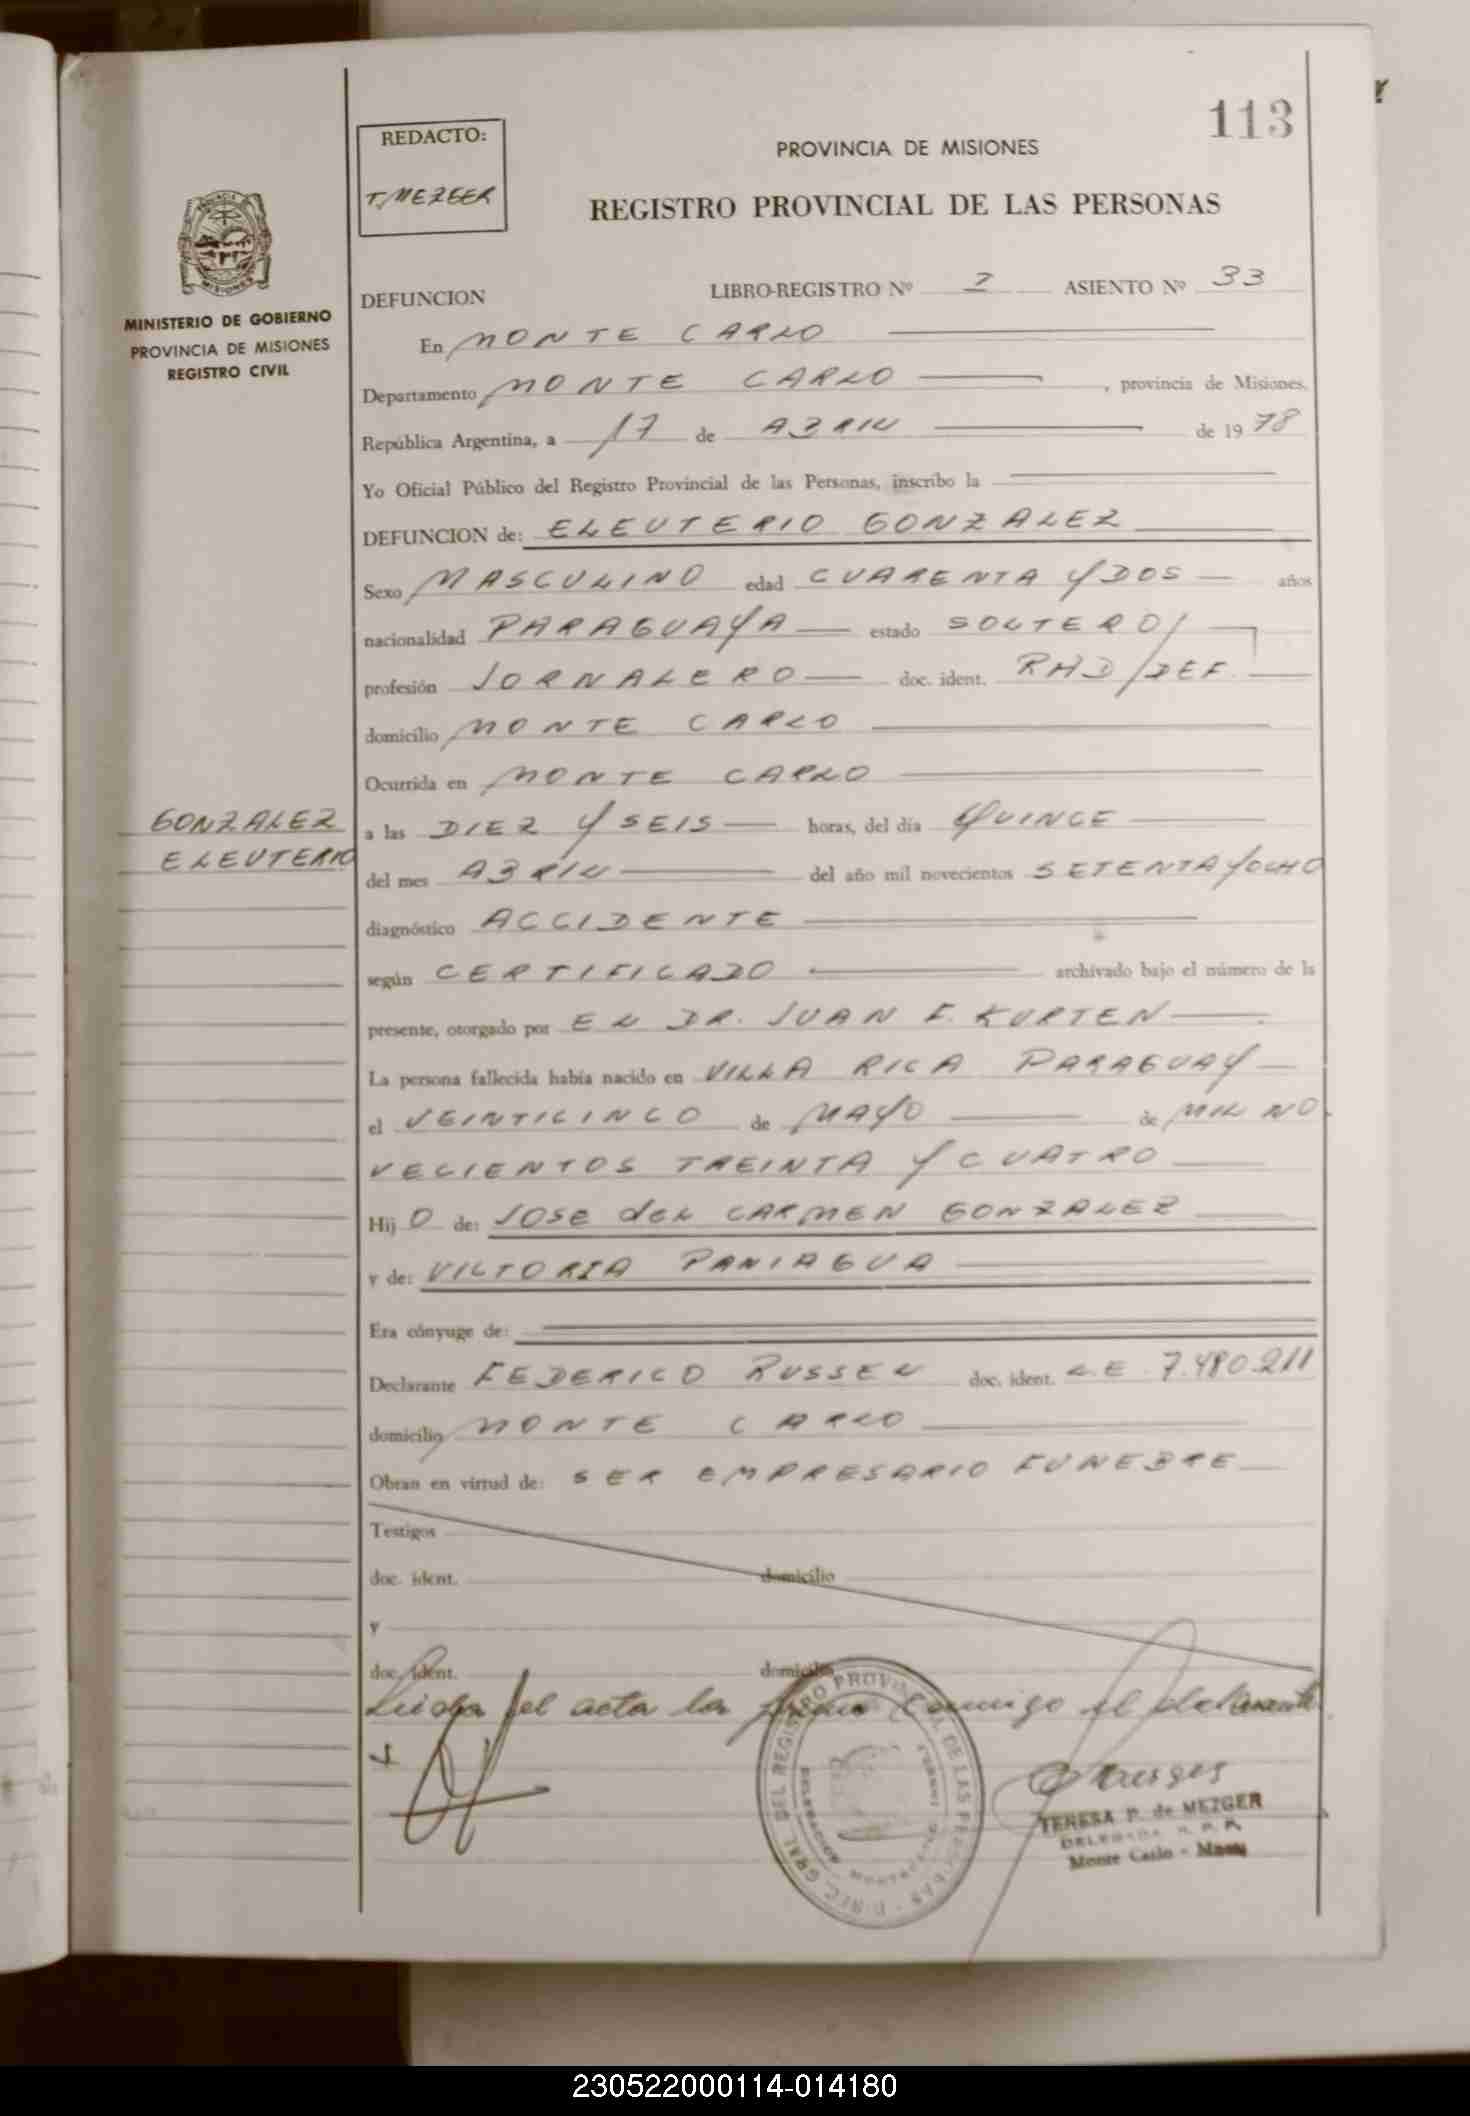 113
REDACTO:
T. MEZGER
PROVINCIA DE MISIONES
REGISTRO PROVINCIAL DE LAS PERSONAS
MINISTERIO DE GOBIERNO
PROVINCIA DE MISIONES
REGISTRO CIVIL
DEFUNCION LIBRO-REGISTRO Nº 2 ASIENTO Nº 33
En MONTE CARLO
Departamento MONTE CARLO, provincia de Misiones,
República Argentina, a 17 de ABRIL de 1978
Yo Oficial Público del Registro Provincial de las Personas, inscribo la
DEFUNCION de: ELEUTERIO GONZALEZ
Sexo MASCULINO edad CUARENTA Y DOS años
nacionalidad PARAGUAYA estado SOLTERO/
profesión JORNALERO doc. ident. RHD/DEF.
domicilio MONTE CARLO
Ocurrida en MONTE CARLO
GONZALEZ
ELEUTERIO
a las DIEZ Y SEIS horas, del día QUINCE
del mes ABRIL del año mil novecientos SETENTA Y OCHO
diagnóstico ACCIDENTE
según CERTIFICADO archivado bajo el número de la
presente, otorgado por EL DR. JUAN F. KURTEN
La persona fallecida había nacido en VILLA RICA PARAGUAY
el VEINTICINCO de MAYO de MIL NO
VECIENTOS TREINTA Y CUATRO
Hij O de: JOSE del CARMEN GONZALEZ
y de: VICTORIA PANIAGUA
Era cónyuge de:
Declarante FEDERICO RUSSEL doc. ident. L.E. 7.480.211
domicilio MONTE CARLO
Obran en virtud de: SER EMPRESARIO FUNEBRE
Testigos
doc. ident. domicilio
y
doc. ident. domicilio
Leida el acta la firma conmigo el declarante
TERESA P. de MEZGER
DELEGADA R. P. P.
Monte Carlo - Mnes
230522000114-014180